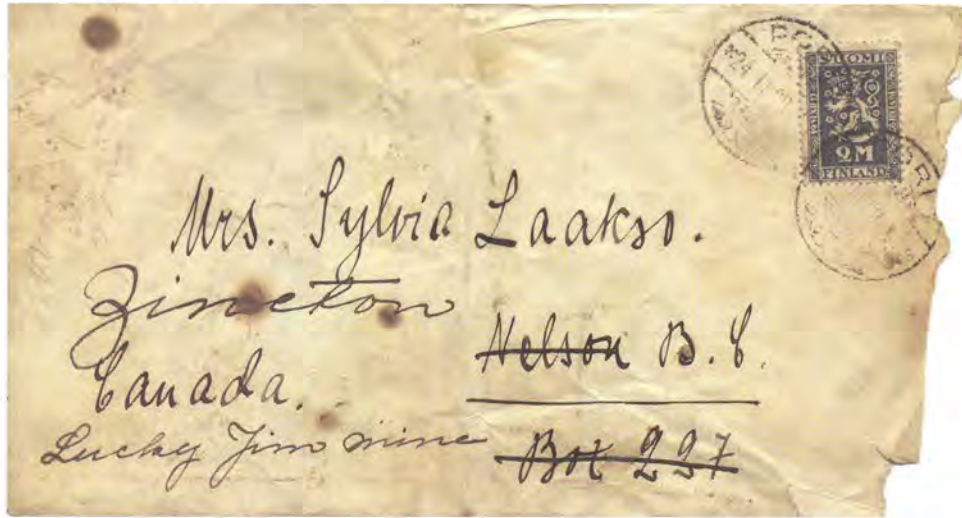 PORI
24
SUOMI
2M
FINLAND
PORI
Mrs. Sylvia Laakso.
Zincton
Nelson B. C.
Canada.
Lucky Jim mine
Box 227